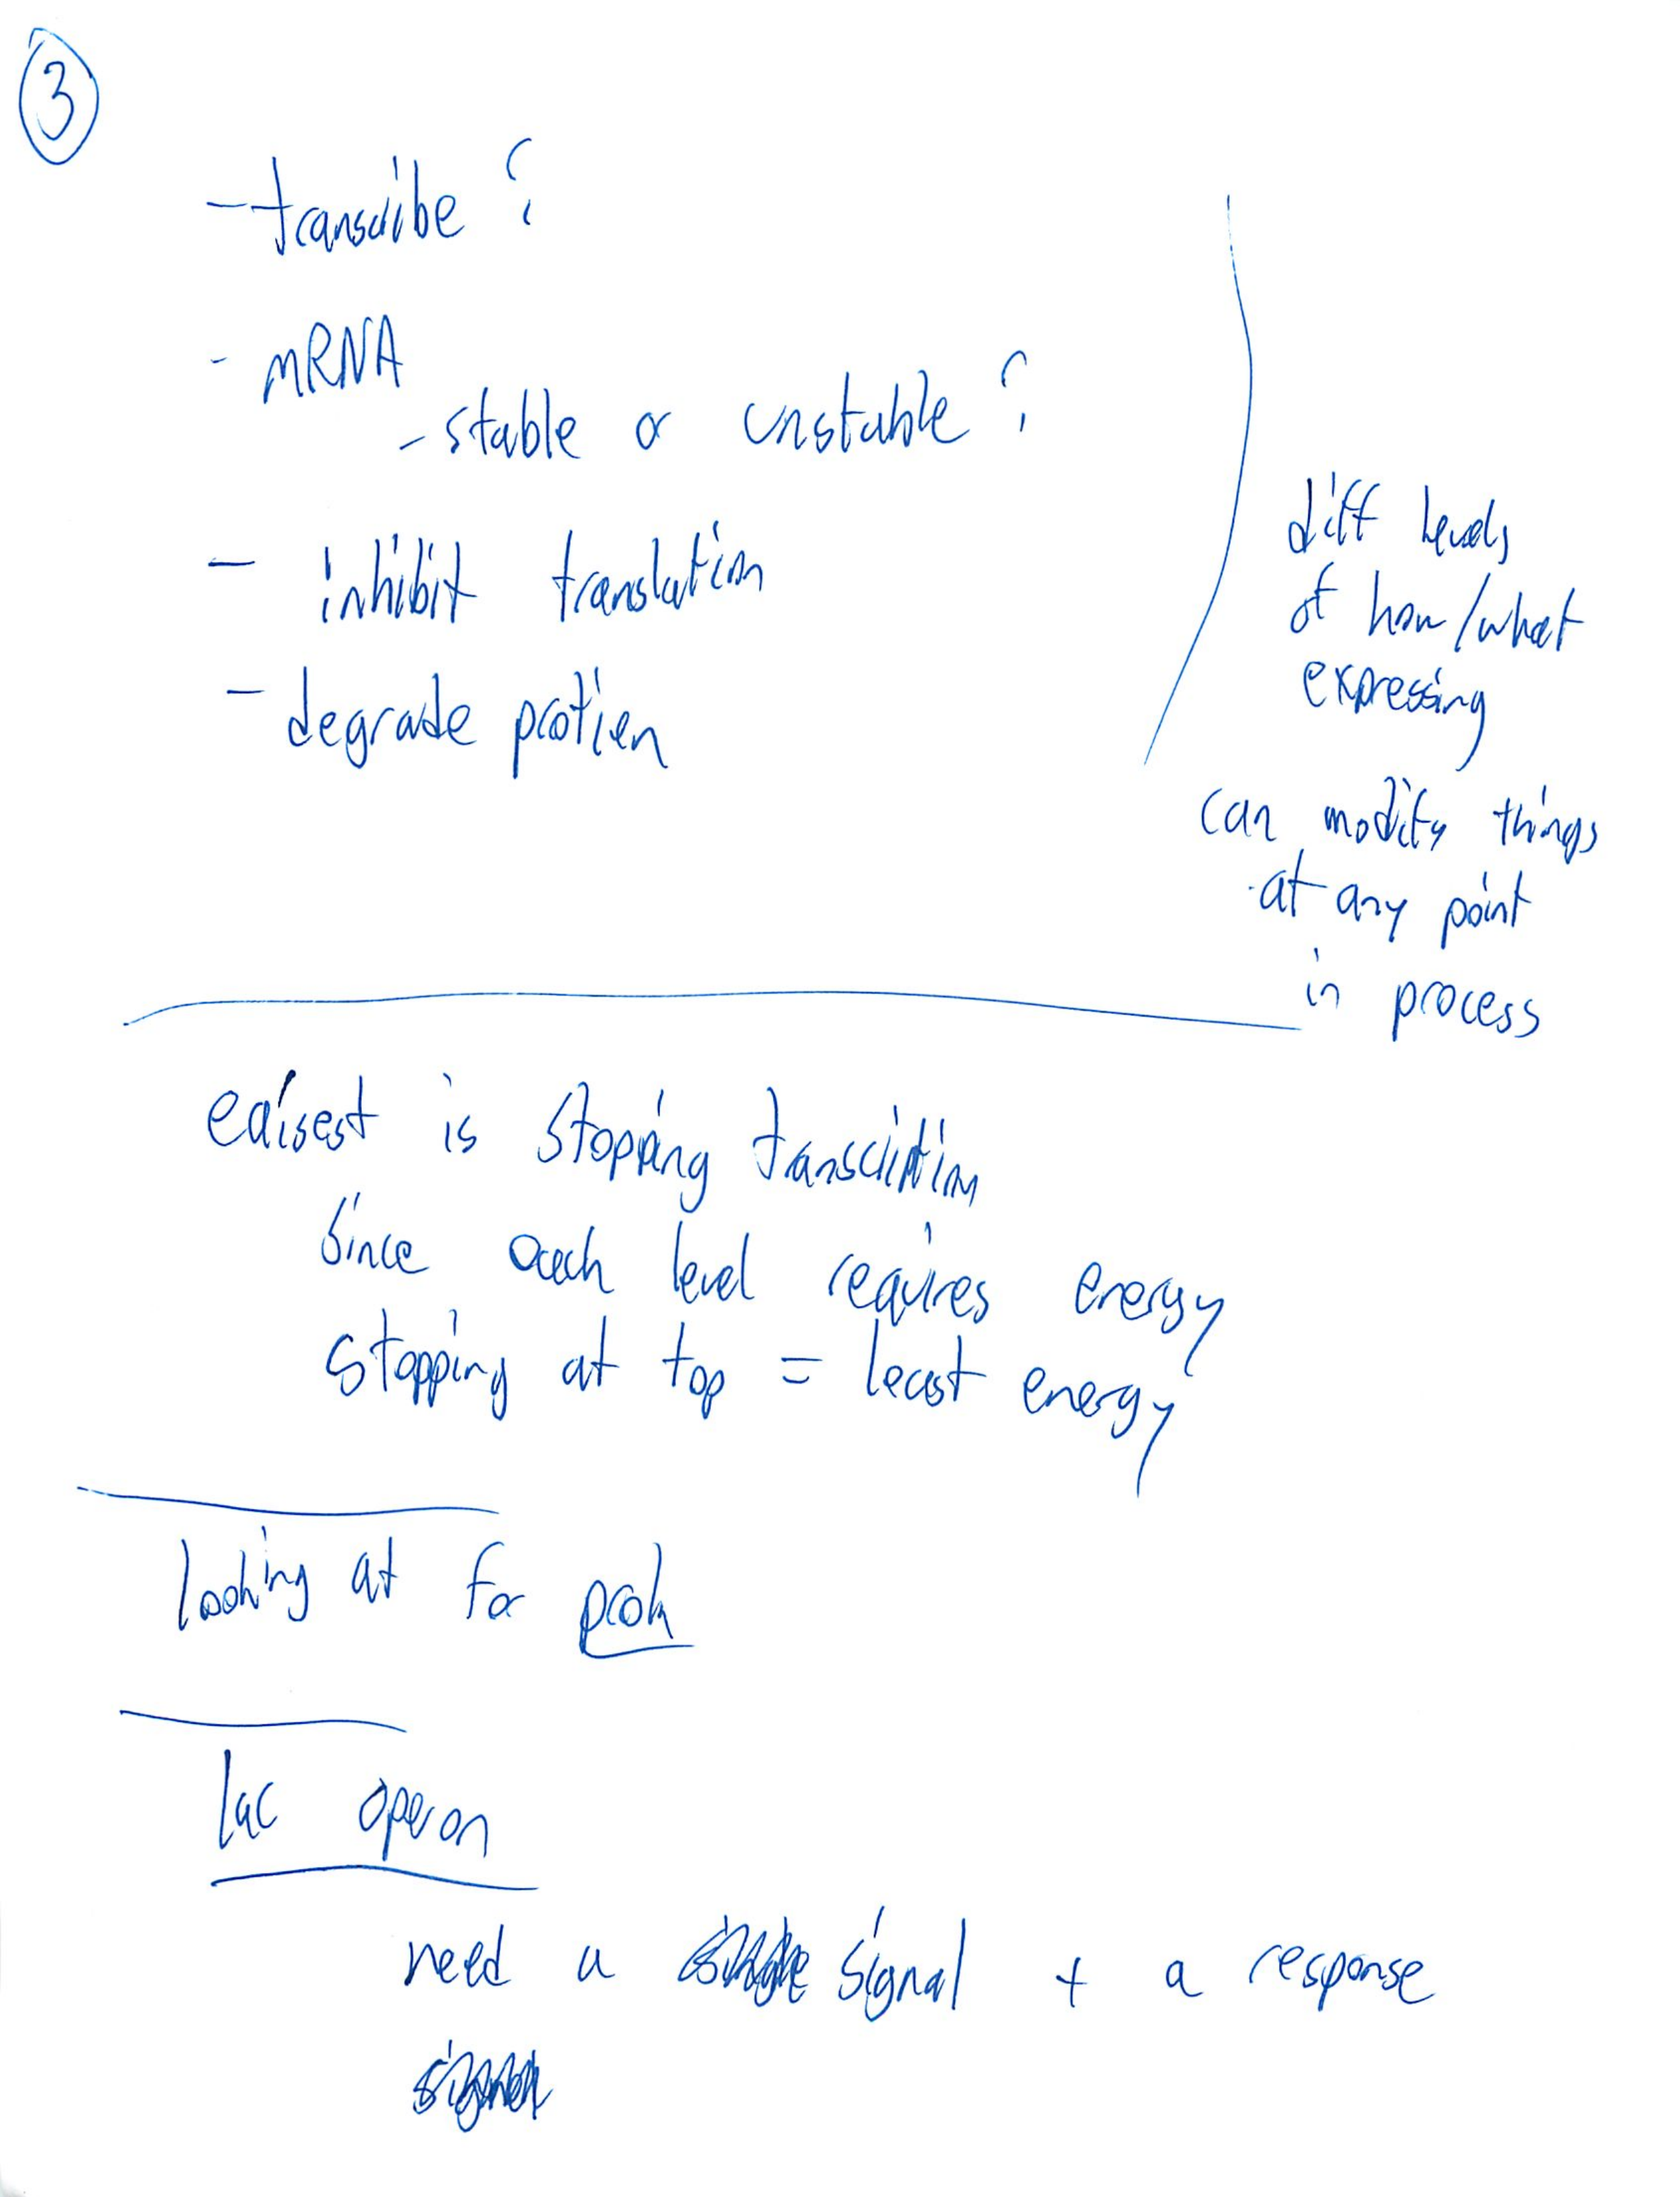 3
- transcribe ?
- mRNA
- stable or unstable ?
- inhibit translation
- degrade protien
diff levels
of how/what
expressing
can modify things
at any point
in process
eaisest is stopping transcription
Since each level requires energy
stopping at top = least energy
looking at for prok
lac operon
need a signal + a response